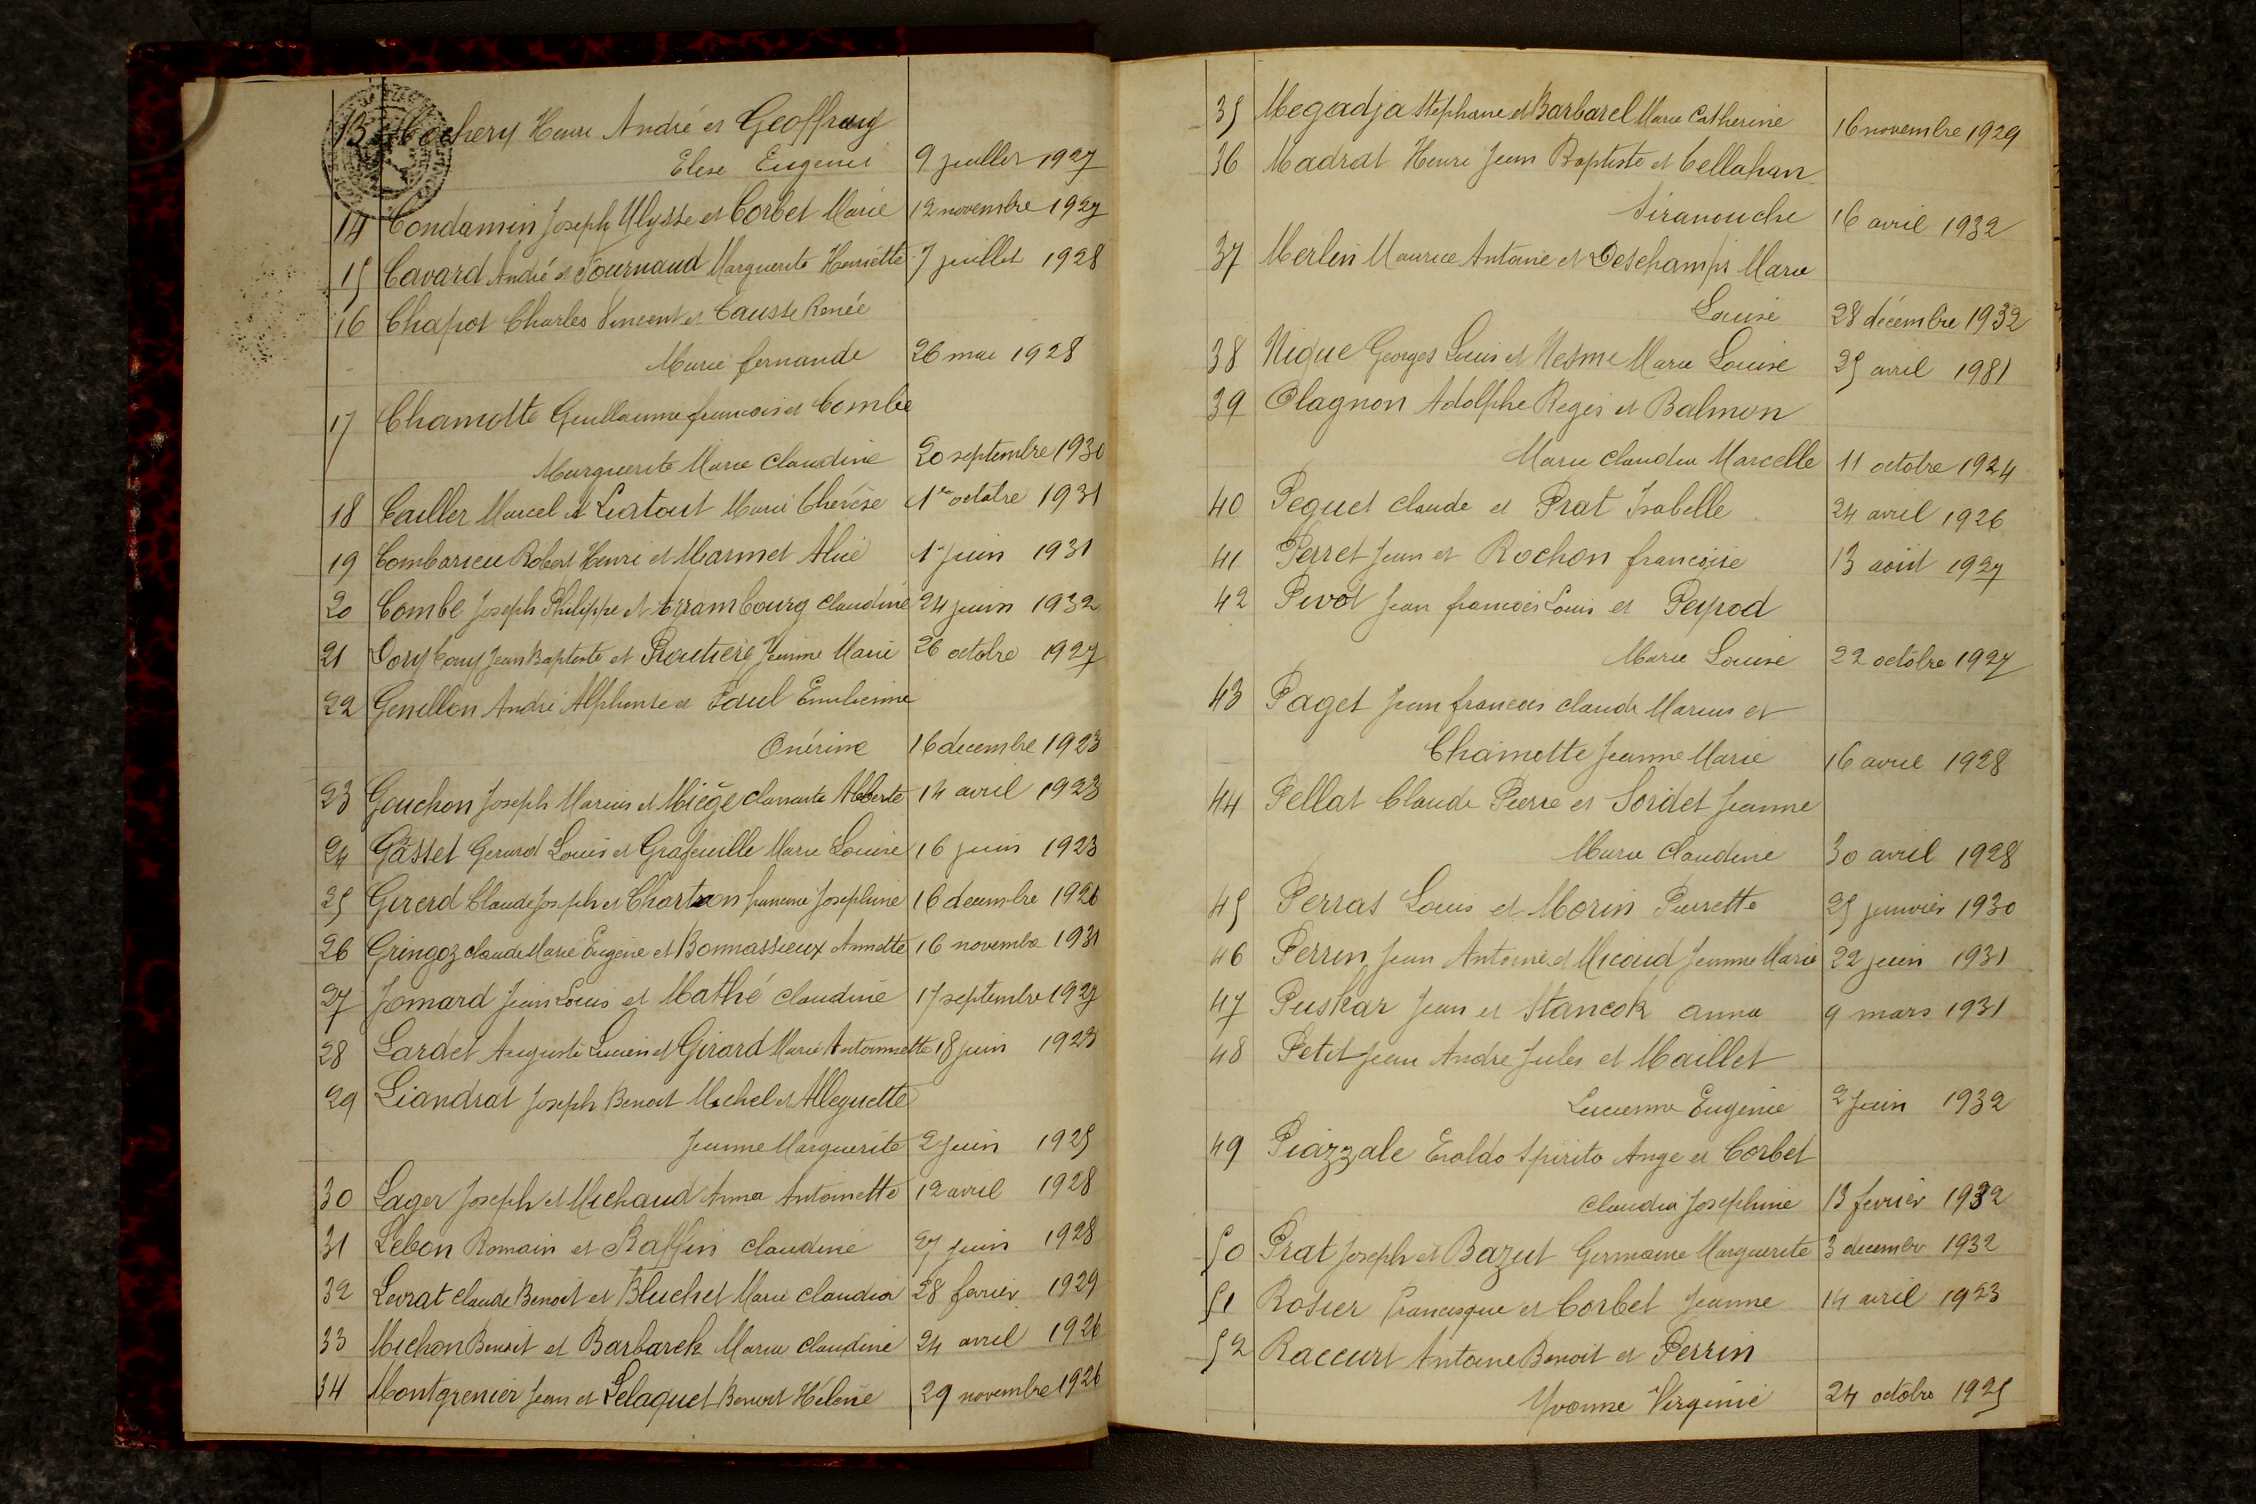 13 Cochery Henri André et Geoffray
Elise Eugénie 9 juillet 1927
14 Condamin Joseph Ulysse et Corbet Marie 12 novembre 1927
15 Cavard André et Tournaud Marguerite Henriette 7 juillet 1928
16 Chapot Charles Vincent et Causse Renée
Marie fernande 26 mai 1928
17 Chamotte Guillaume françois et Combe
Marguerite Marie Claudine 20 septembre 1930
18 Cailler Marcel et Liatout Marie Thérèse 1er octobre 1931
19 Combarieu Robert Henri et Marmet Alice 1er juin 1931
20 Combe Joseph Philippe et Arrambourg Claudine 24 juin 1932
21 Dory Jean Baptiste et Proutière Jeanne Marie 26 octobre 1927
22 Genillon André Alphonse et Paul Emilienne
Onérine 16 decembre 1923
23 Gouchon Joseph Marius et Miège Alberte 14 avril 1923
24 Gasset Gerard Louis et Grafeuille Marie Louise 16 juin 1923
25 Girerd Claude Joseph et Chartron Josephine 16 decembre 1926
26 Gringoz claude Marie Eugène et Bonnassieux Annette 16 novembre 1931
27 Jomard Jean Louis et Mathé claudine 17 septembre 1927
28 Lardet Auguste Lucien et Girard Marie Antoinette 18 juin 1923
29 Liandrat Joseph Benoit Michel et Alleguette
Jeanne Marguerite 2 juin 1925
30 Lager Joseph et Michaud Anna Antoinette 12 avril 1928
31 Lebon Romain et Raffin claudine juin 1928
32 Levrat claude Benoit et Bluchet Marie claudia 28 fevrier 1929
33 Michon Benoit et Barbarek Maria claudine 24 avril 1926
34 Montgrenier Jean et Lelaquet Benoit Hélène 29 novembre 1926
35 Megadja Stephane et Barbarel Marie Catherine 16 novembre 1929
36 Madrat Henri Jean Baptiste et Cellahian
Siranouche 16 avril 1932
37 Merlin Maurice Antoine et Deschamps Marie
Louise 28 décembre 1932
38 Nique Georges Louis et Nesme Marie Louise 25 avril 1931
39 Olagnon Adolphe Regis et Balmon
Marie Claudia Marcelle 11 octobre 1924
40 Peguet claude et Prat Isabelle 24 avril 1926
41 Perret Jean et Rochon françoise 13 août 1927
42 Pivot Jean françois Louis et Peyrod
Marie Louise 22 octobre 1927
43 Paget Jean françois claude Marius et
Chamotte Jeanne Marie 16 avril 1928
44 Pellat Claude Pierre et Sordet Jeanne
Marie Claudine 30 avril 1928
45 Perras Louis et Morin Pierrette 25 janvier 1930
46 Perrin Jean Antoine et Micoud Jeanne Marie 22 juin 1931
47 Puskar Jean et Stancok anna 9 mars 1931
48 Petit Jean André Jules et Maillet
Lucienne Eugénie 2 juin 1932
49 Piazzale Eraldo Spirito Ange et Corbet
claudia Josephine 13 fevrier 1932
50 Prat Joseph et Bazut Germaine Marguerite 3 decembre 1932
51 Rosier francisque et Corbet Jeanne 14 avril 1923
52 Raccurt Antoine Benoit et Perrin
Yvonne Virginie 24 octobre 1925